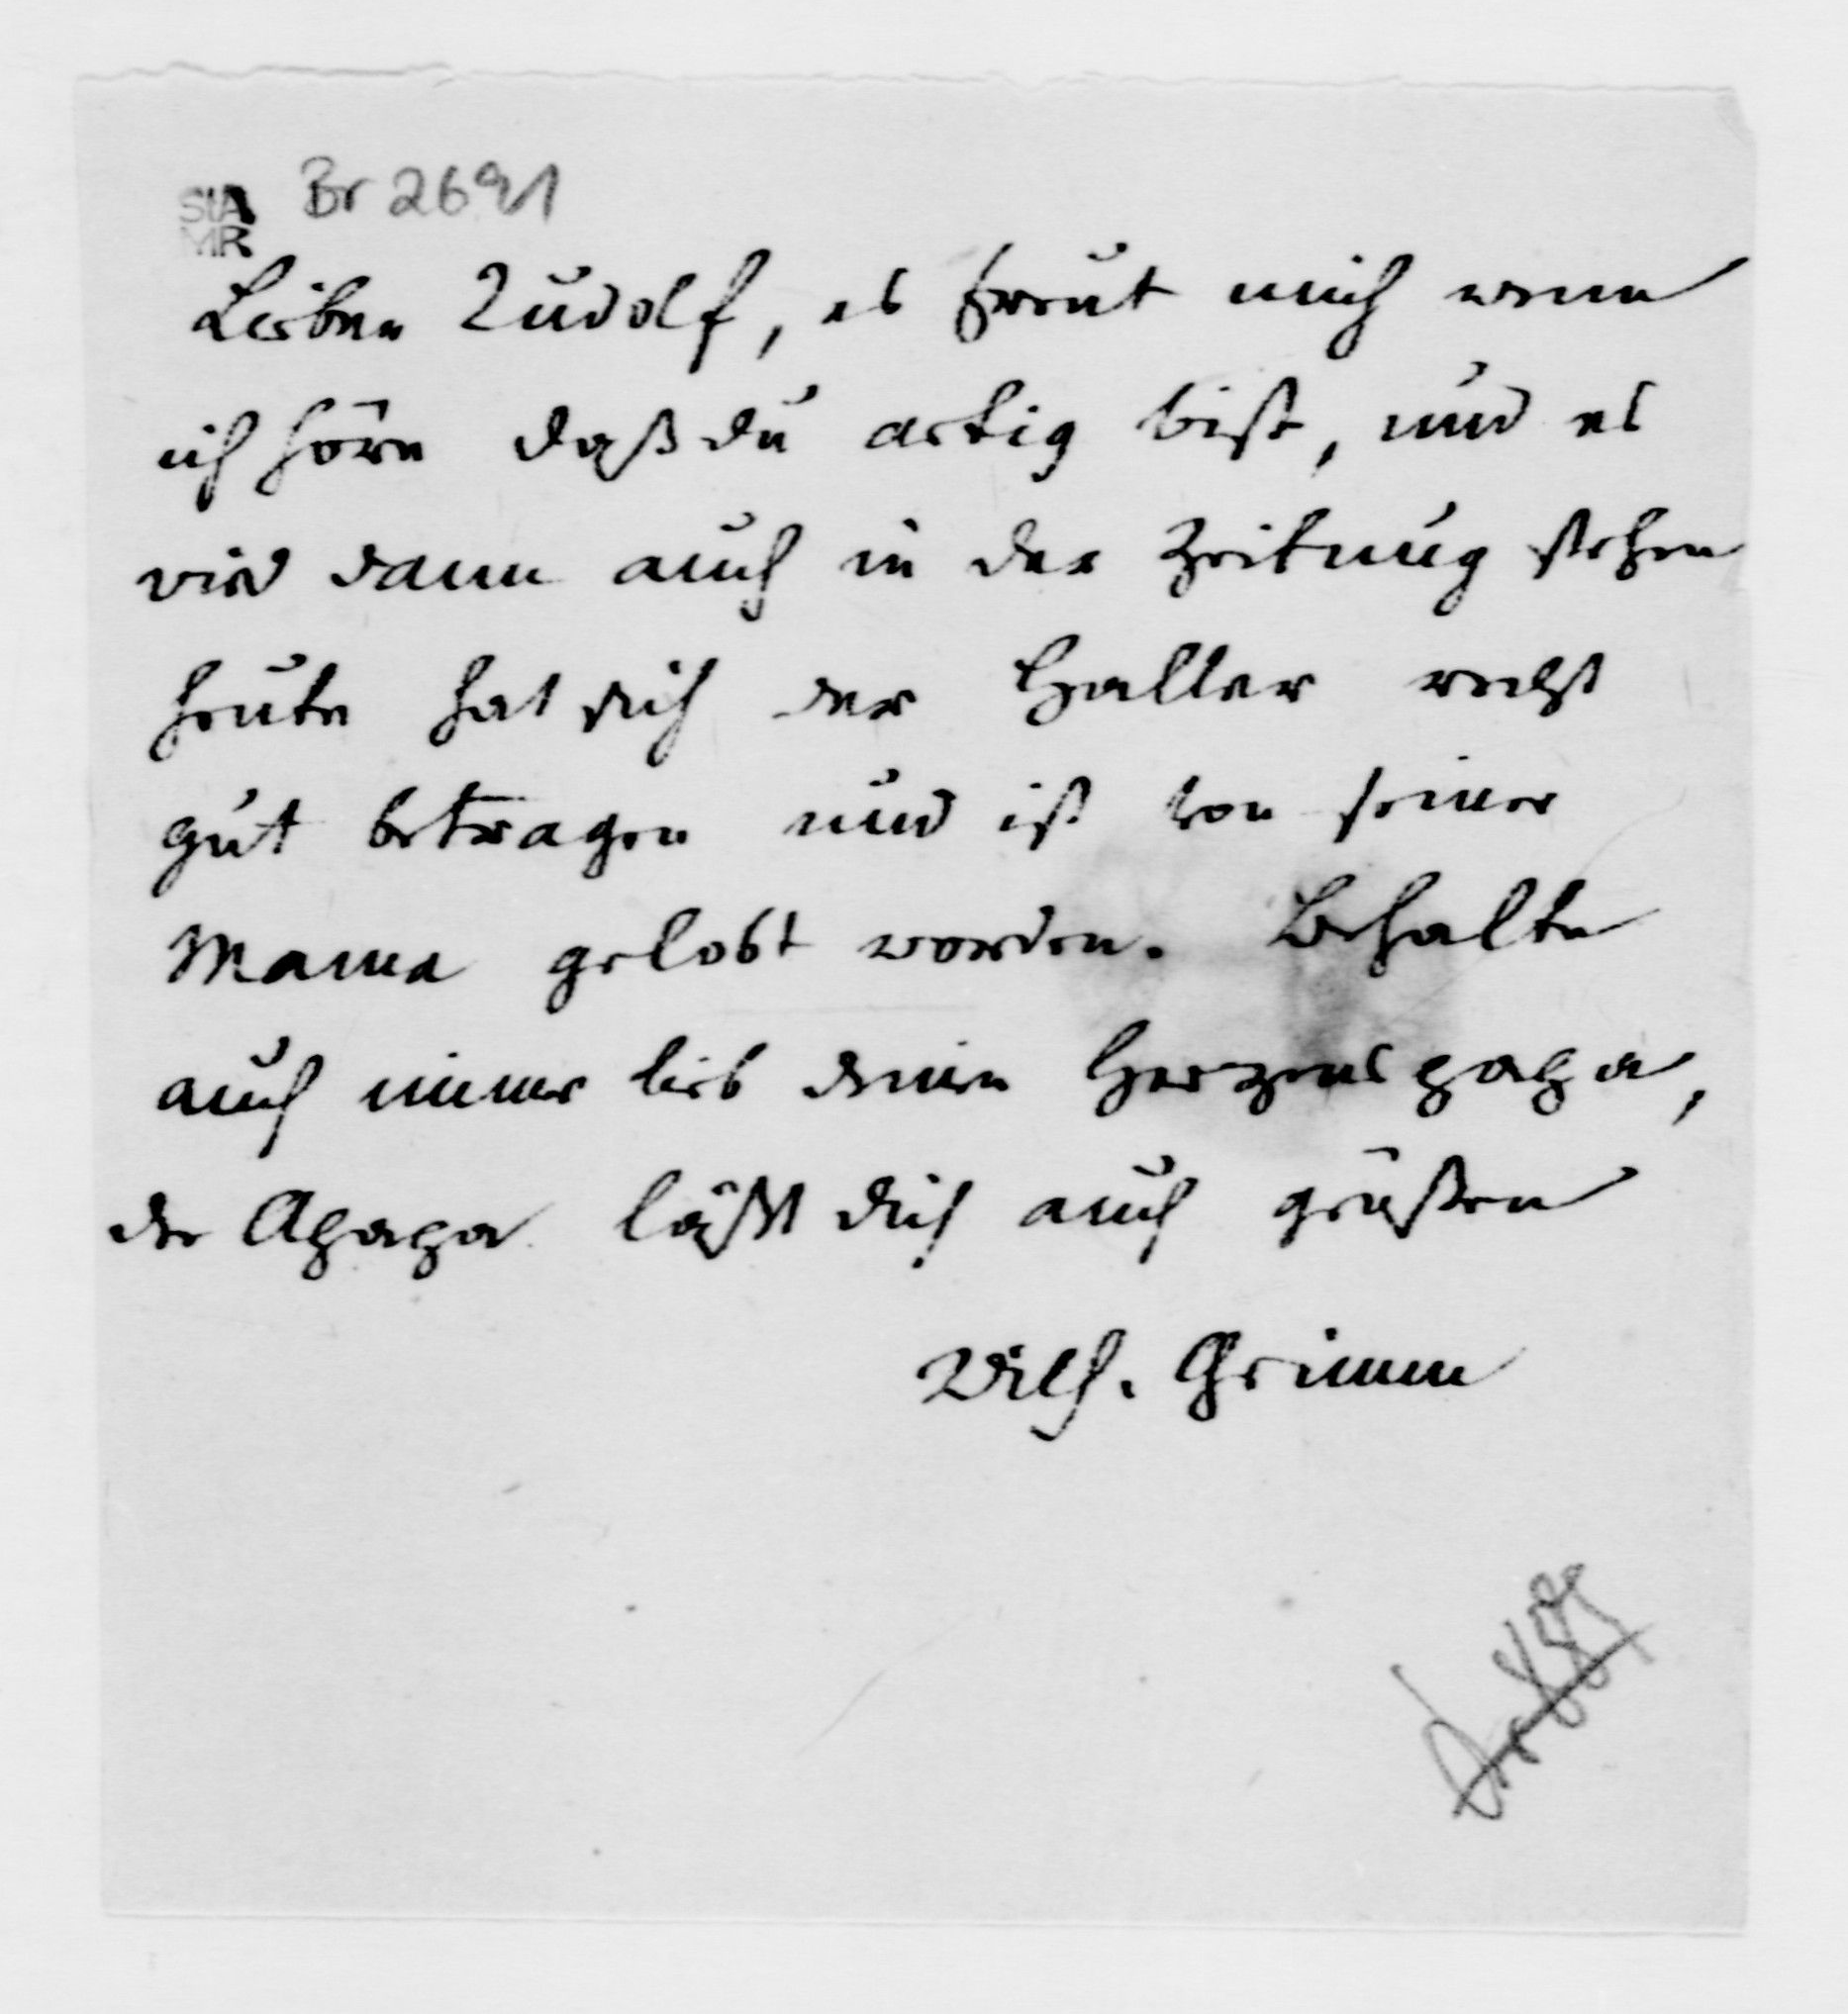 StA Br 2691
MR
Lieber Rudolf, es freut mich wenn
ich höre daß du artig bist, und es
wird dann auch in der Zeitung stehen
heute hat sich der Haller recht
gut betragen und ist von seiner
Mama gelobt worden. Behalte
auch immer lieb deinen Herzenspapa,
der Apapa läßt dich auch grüßen
Wilh. Grimm